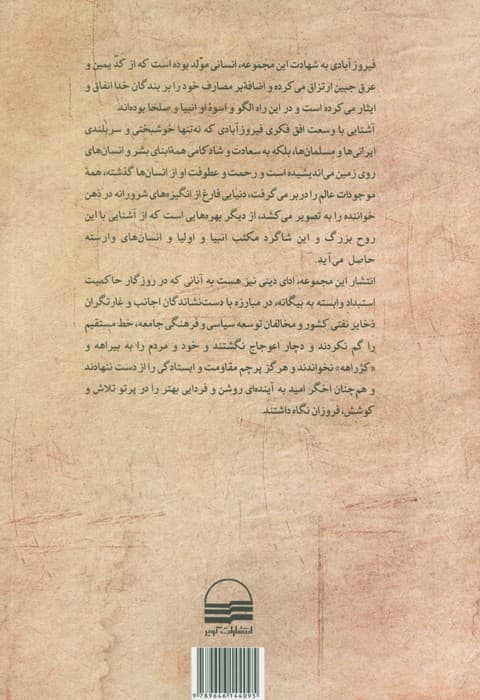 فیروزآبادی به شهادت این مجموعه، انسانی مولّد بوده است که از کدّ یمین و
عرق جبین ارتزاق می‌کرده و اضافه‌بر مصارف خود را بر بندگان خدا انفاق و
ایثار می‌کرده است و در این راه الگو و اسوهٔ او انبیا و صلحا بوده‌اند.
آشنایی با وسعت افق فکری فیروزآبادی که نه‌تنها خوشبختی و سربلندی
ایرانی‌ها و مسلمان‌ها، بلکه به سعادت و شادکامی همهٔ ابنای بشر و انسان‌های
روی زمین می‌اندیشیده است و رحمت و عطوفت او از انسان‌ها گذشته، همهٔ
موجودات عالم را دربر می‌گرفت، دنیایی فارغ از انگیزه‌های شرورانه در ذهن
خواننده را به تصویر می‌کشد، از دیگر بهره‌هایی است که از آشنایی با این
روح بزرگ و این شاگرد مکتب انبیا و اولیا و انسان‌های وارسته
حاصل می‌آید.
انتشار این مجموعه، ادای دینی نیز هست به آنانی که در روزگار حاکمیت
استبداد وابسته به بیگانه، در مبارزه با دست‌نشاندگان اجانب و غارتگران
ذخایر نفتی کشور و مخالفان توسعه سیاسی و فرهنگی جامعه، خط مستقیم
را گم نکردند و دچار اعوجاج نگشتند و خود و مردم را به بیراهه و
«کژراهه» نخواندند و هرگز پرچم مقاومت و ایستادگی را از دست ننهادند
و هم‌چنان اخگر امید به آینده‌ای روشن و فردایی بهتر را در پرتو تلاش و
کوشش، فروزان نگاه داشتند.
انتشارات کویر
9789646144095